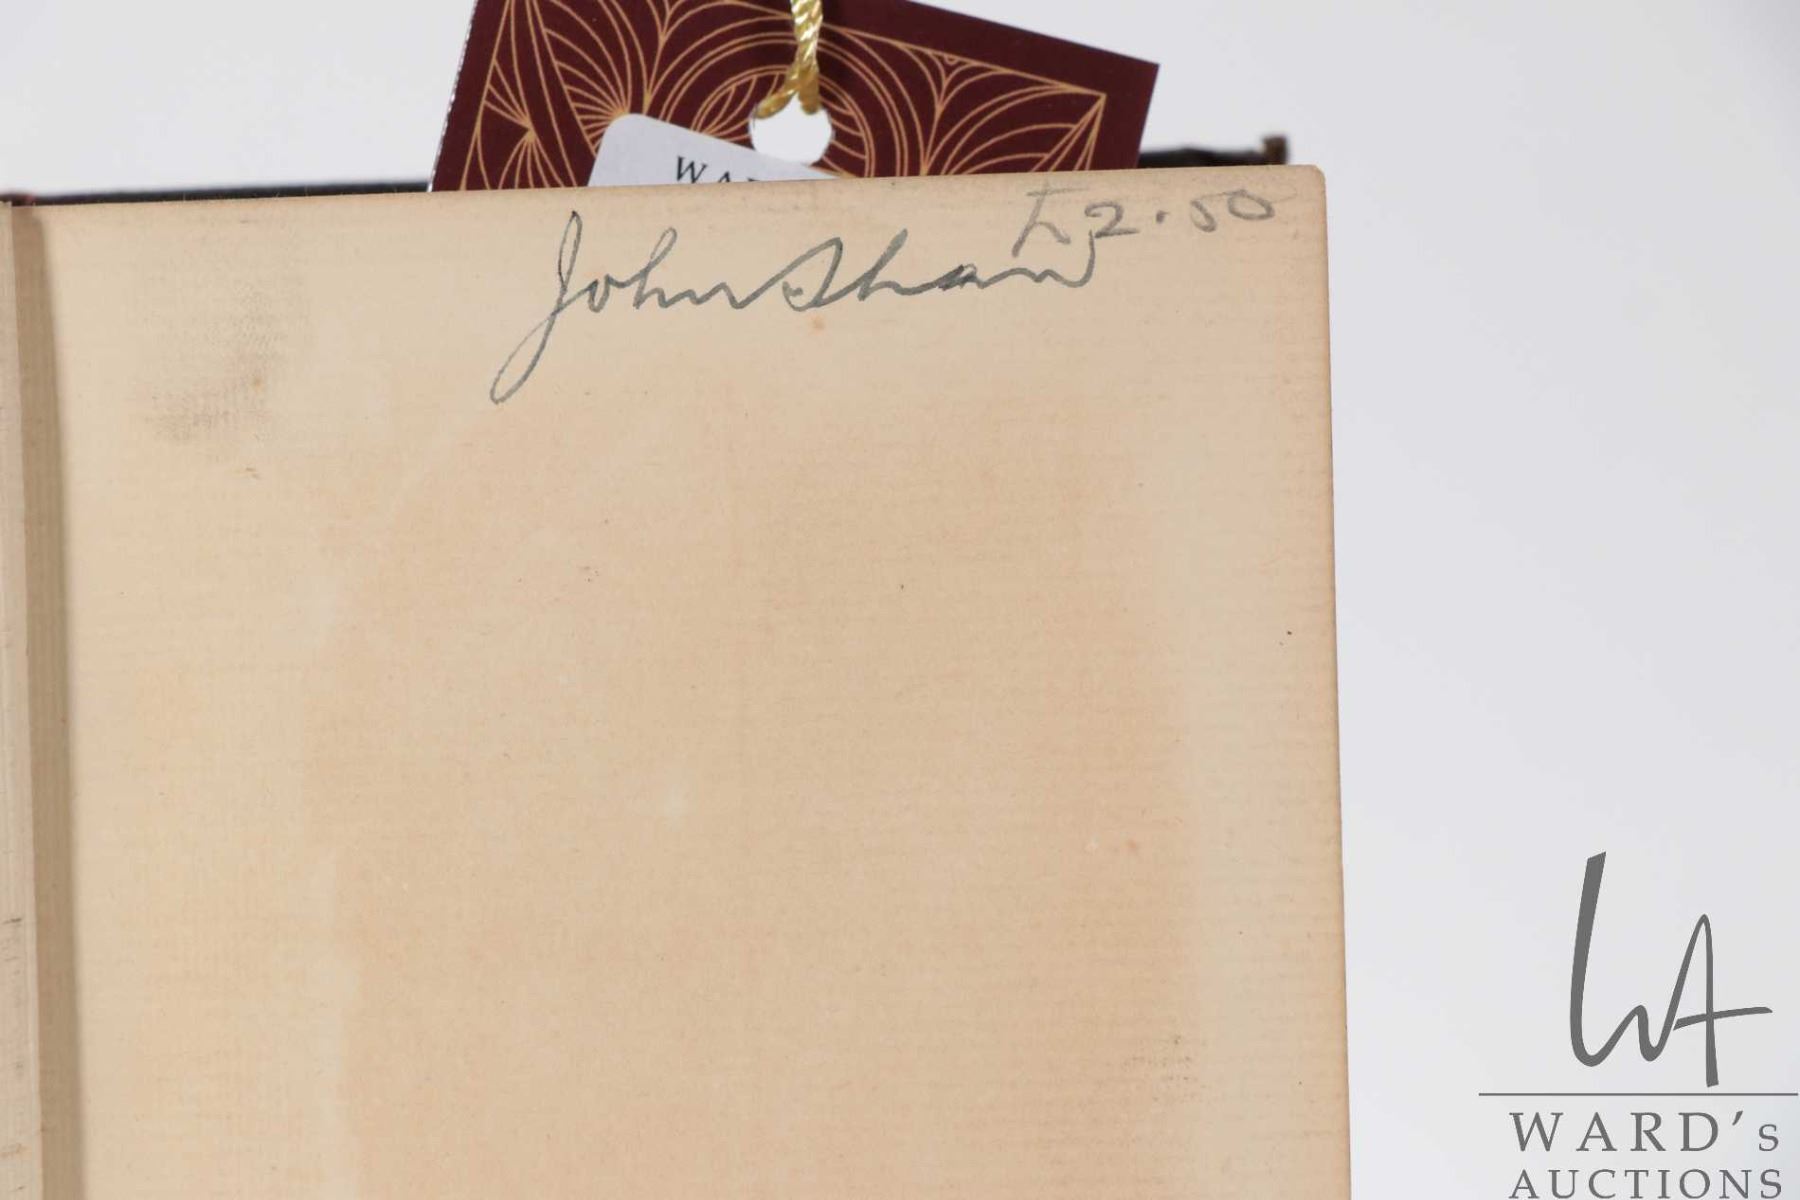 WA
£2.50
John Shaw
WA
WARD's
AUCTIONS